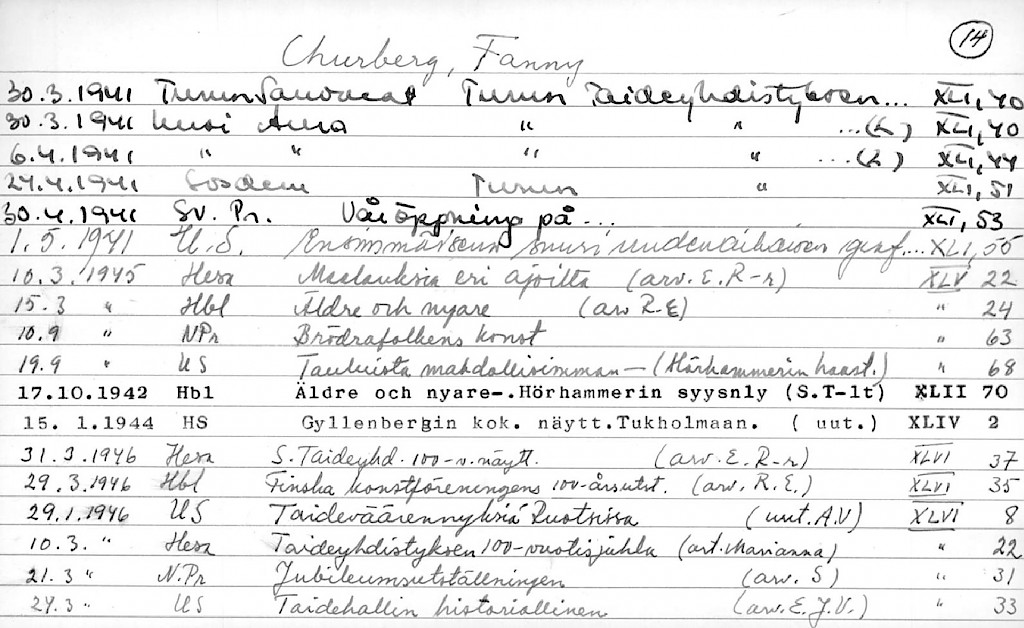 14
Churberg, Fanny
30.3.1941 Turun Sanomat Turun Taideyhdistyksen... XLI, 40
30.3.1941 Uusi Aura " " ...(L) XLI, 40
6.4.1941 " " " " ...(L) XLI, 44
24.4.1941 Sosdem Turun " XLI, 51
30.4.1941 Sv. Pr. Våröppning på... XLI, 53
1.5.1941 U.S. Ensimmäisenä suuri uudenaikaisen graf... XLI, 55
10.3.1945 Hesa Maalauksia eri ajoilta (arv. E. R-r) XLV 22
15.3 " Hbl Äldre och nyare (arv R-E) " 24
10.9 " NPr Brödrafolkens konst " 63
19.9 " US Tauluista mahdollisimman — (Hörhammerin haast.) " 68
17.10.1942 Hbl Äldre och nyare-.Hörhammerin syysnly (S.T-lt) XLII 70
15. 1.1944 HS Gyllenbergin kok. näytt.Tukholmaan. ( uut.) XLIV 2
31.3.1946 Hesa S. Taideyhd. 100-v. näytt. (arv. E. R-r) XLVI 37
29.3.1946 Hbl Finska konstföreningens 100-årsutst. (arv. R.E.) XLVI 35
29.1.1946 US Taideväärennyksiä Ruotsissa (uut. A.V) XLVI 8
10.3. " Hesa Taideyhdistyksen 100-vuotisjuhla (art. Marianna) " 22
21.3 " N.Pr Jubileumsutställningen (arv. S) " 31
24.3 " US Taidehallin historiallinen (arv. E.J.V.) " 33